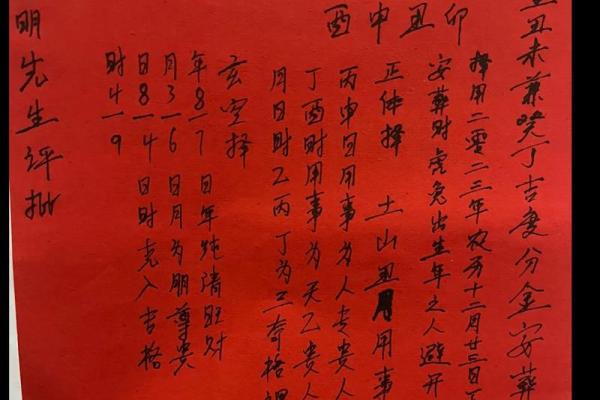 丑未兼癸丁吉度份金安葬
择用二零二三年农历十二月廿三日
安葬时虎兔出生年之人避开
酉申丑卯
正体择 土山丑月用事
丙申日用事为人专贵人
丁酉时用事为天乙贵人
月日时乙丙丁为三奇格
玄空择
年8-7 日年纯清旺财
月3-6 日月为朋尊贵
日8-4 日时克入吉格
时4-9
明先生评批